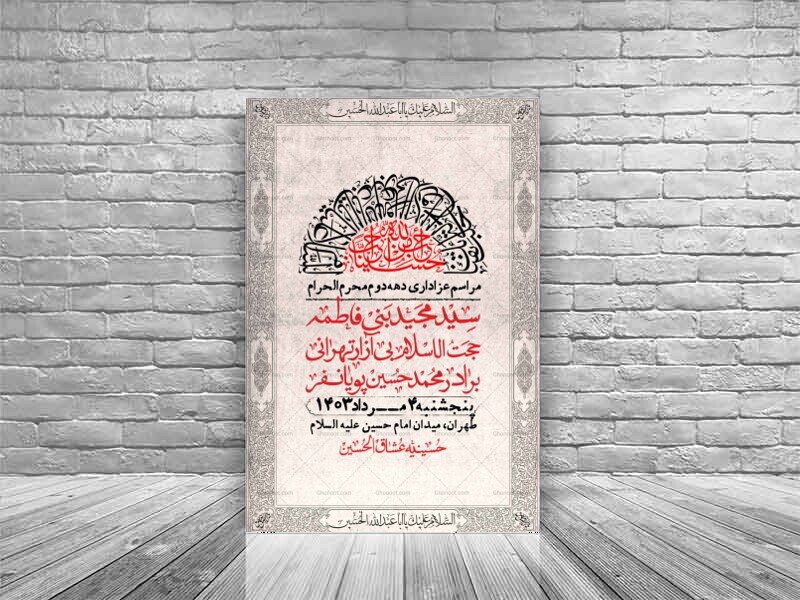 السلام علیك یا اباعبدالله الحسین
مراسم عزاداری دهه دوم محرم الحرام
سید مجید بنی فاطمه
حجت الاسلام بی آزار تهرانی
برادر محمد حسین پویانفر
پنجشنبه ۴ مـــرداد ۱۴۰۳
طهران، میدان امام حسین علیه السلام
حسینیه عشاق الحسین
السلام علیك یا اباعبدالله الحسین